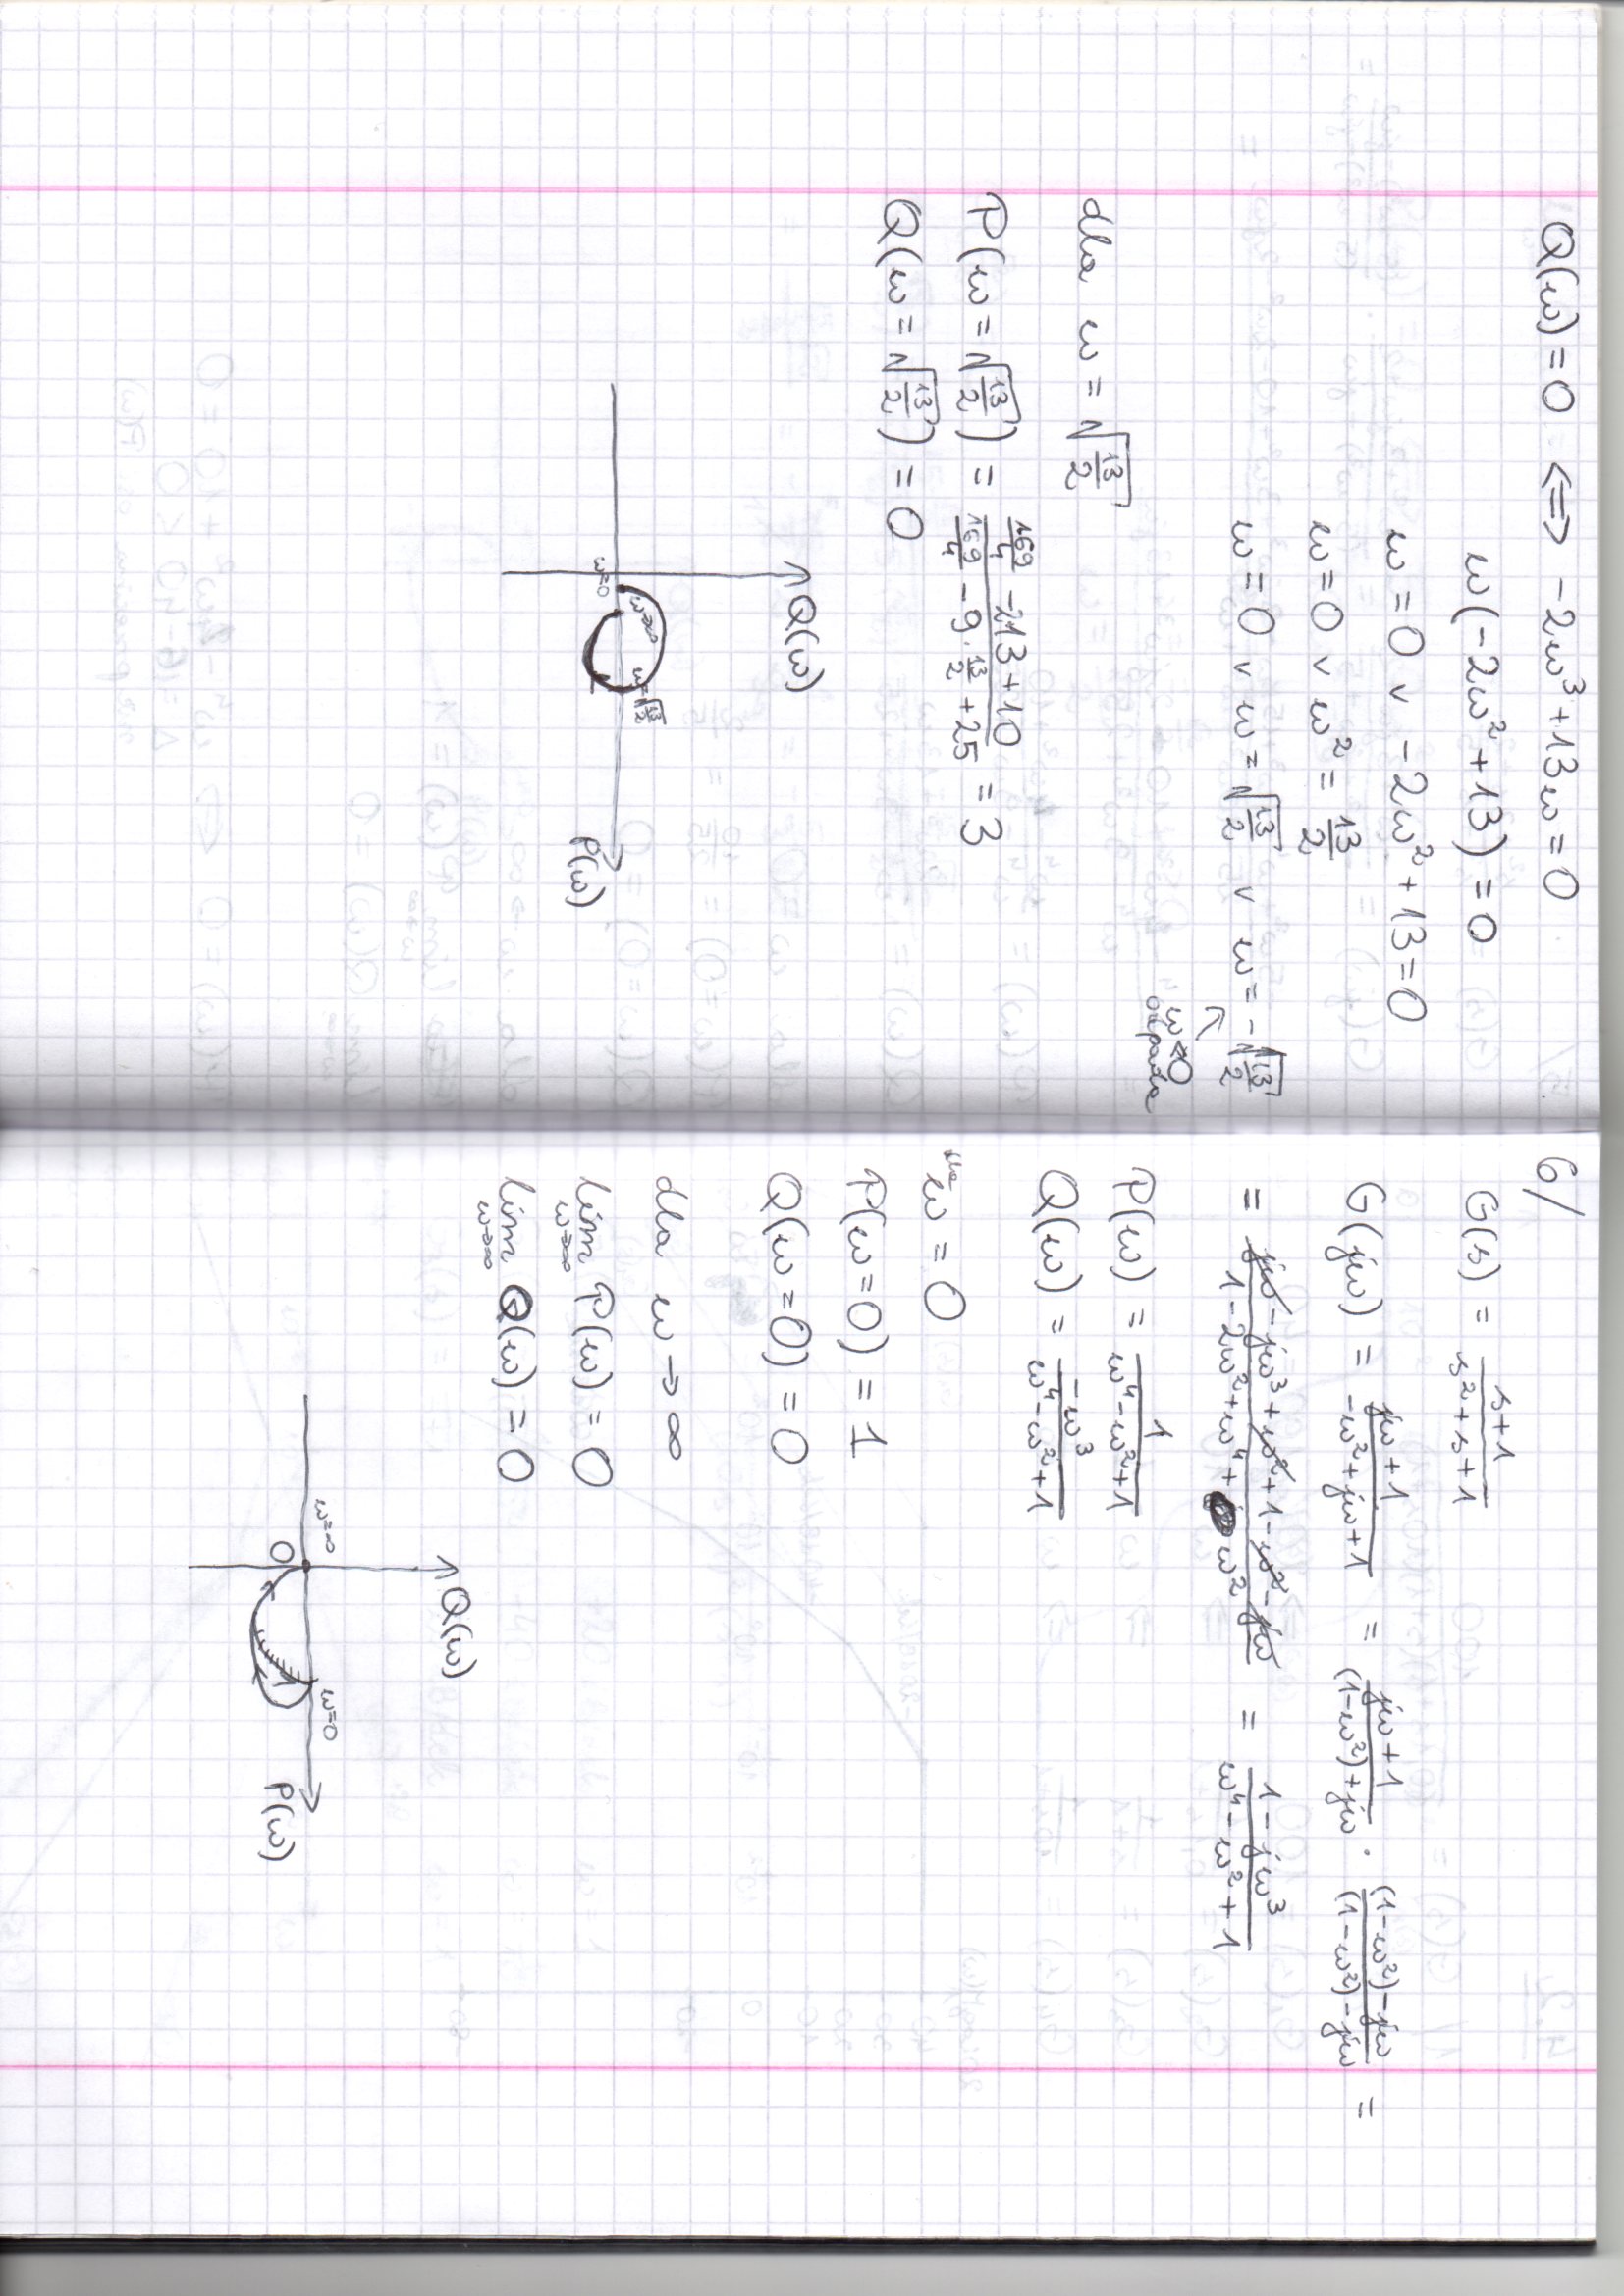 Q(ω) = 0 <=> -2ω³ + 13ω = 0
ω(-2ω² + 13) = 0
ω = 0 ∨ -2ω² + 13 = 0
ω = 0 ∨ ω² = 13/2
ω = 0 ∨ ω = √(13/2) ∨ ω = -√(13/2)
ω<0
odpada
dla ω = √(13/2)
P(ω = √(13/2)) = (169/4 - 213 + 10)/(169/4 - 9·13/2 + 25) = 3
Q(ω = √(13/2)) = 0
Q(ω)
ω→∞ ω=√(13/2)
ω=0
P(ω)
6/
G(s) = (s+1)/(s²+s+1)
G(jω) = (jω+1)/(-ω²+jω+1) = (jω+1)/((1-ω²)+jω) · ((1-ω²)-jω)/((1-ω²)-jω) =
= (jω - jω³ + ω² + 1 - ω² - jω)/(1 - 2ω² + ω⁴ + ω²) = (1 - jω³)/(ω⁴ - ω² + 1)
P(ω) = 1/(ω⁴ - ω² + 1)
Q(ω) = -ω³/(ω⁴ - ω² + 1)
dla ω = 0
P(ω=0) = 1
Q(ω=0) = 0
dla ω → ∞
lim ω→∞ P(ω) = 0
lim ω→∞ Q(ω) = 0
Q(ω)
ω=∞ ω=0
0 1 P(ω)